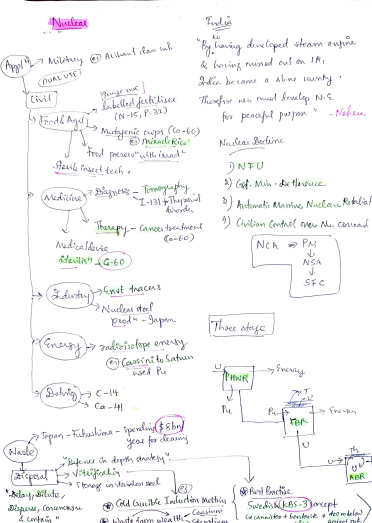 Nuclear
Applⁿ
Military
eg Arihant class sub
DUAL USE
Civil
Food & Agri
Labelled fertilizer
(N-15, P-32)
Mutagenic crops (Co-60)
eg Miracle Rice
Food preserv "with irradⁿ
Sterile insect tech.
Medicine
Diagnosis - Tomography
I-131 → Thyroid
disorder
Therapy - Cancer treatment
(Co-60)
Medical device
sterilisⁿ - Co-60
Industry
Envt tracers
Nuclear steel
prodⁿ - Japan
Energy
radioisotope energy
eg Cassini to Saturn
used Pu
Dating
C-14
Ca-41
Waste
Japan - Fukushima - spending $8bn
year for cleaning
Disposal
"Defence in depth strategy"
Vitrification
Storage in stainless steel
"Delay, Dilute,
Disperse, Concentrate
& Contain"
Cold Crucible Induction Melting
Wealth from Wealth
Caesium
India
"By having developed steam engine
& having missed out on IR,
India became a slave country.
Therefore we must develop N.E
for peaceful purpose" - Nehru
Nuclear Doctrine
1) NFU
2) Cred. Min. Deterrence
3) Automatic Massive Nuclear Retaliatⁿ
4) Civilian Control over Nu. command
NCA → PM
NSA
SFC
Three stage
U
PHWR
Energy
Pu
Pu
T
U
FBR
Energy
U
Th
U
Best Practise
Swedish KBS-3 concept